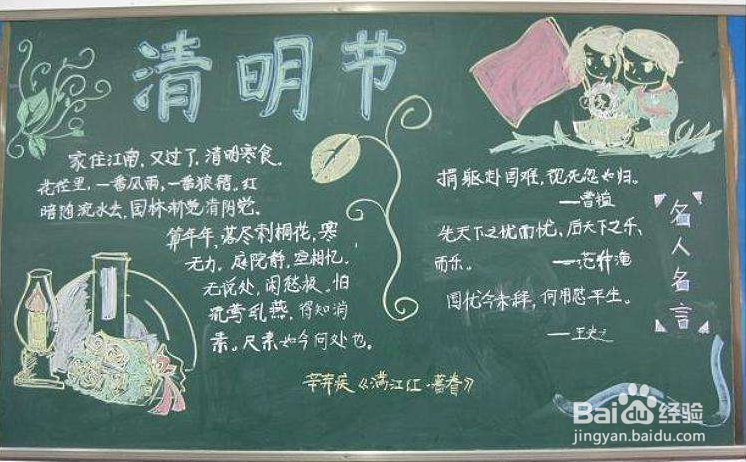 清明节
家住江南,又过了,清明寒食。
花径里,一番风雨,一番狼藉。红
暗随流水去,园林渐觉清阴
算年年,落尽刺桐花,寒
无力。庭院静,空相忆。
无说处,闲愁极。怕
流莺乳燕,得知消
素。尺素如今何处也。
辛弃疾《满江红·暮春》
捐躯赴国难,视死忽如归。
——曹植
先天下之忧而忧,后天下之乐
而乐。 ——范仲淹
国忧今未释,何用慰平生。
——王
名人名言
Baidu 经验
jingyan.baidu.com